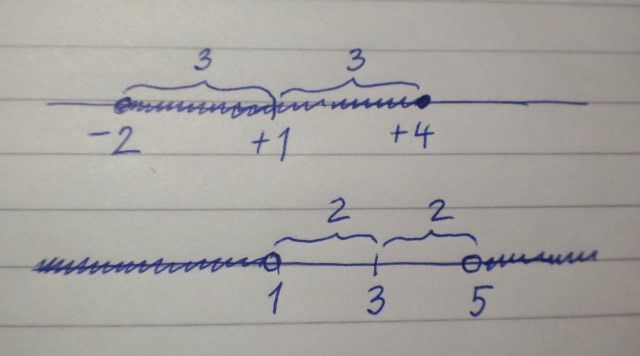 3 3
-2 +1 +4
2 2
1 3 5